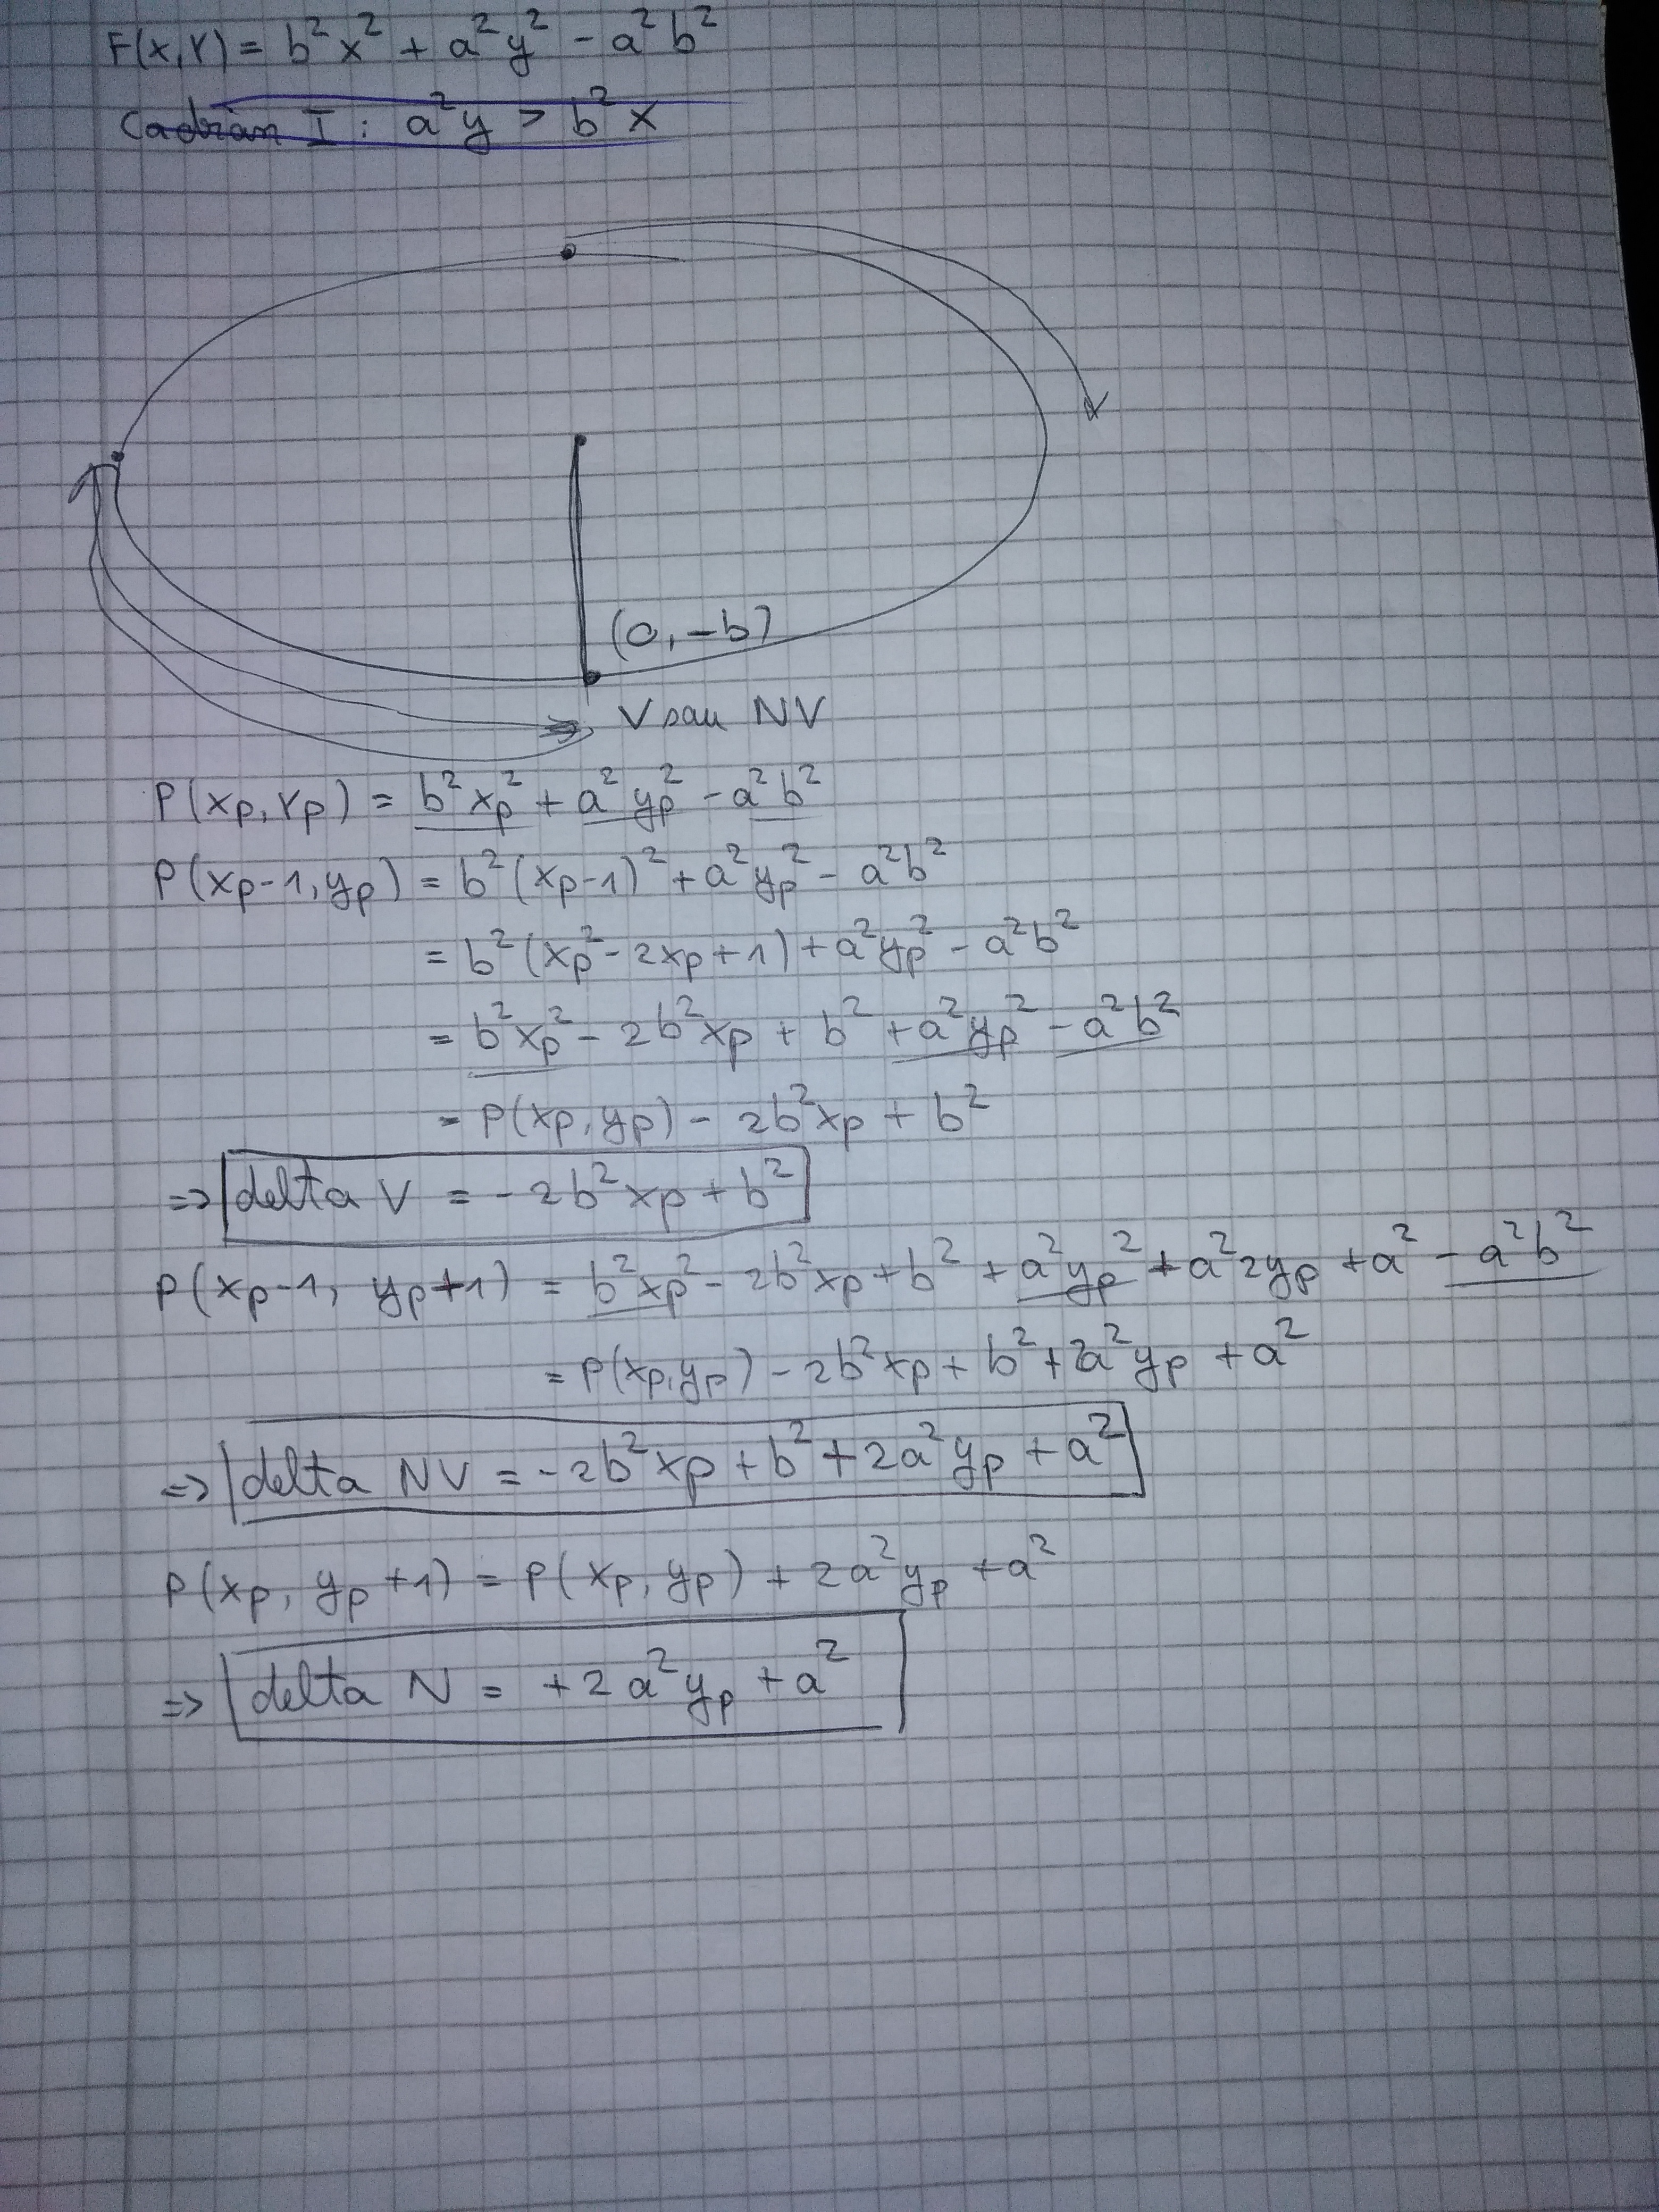 F(x,Y) = b² x² + a² y² - a² b²
Cadran I : a² y > b² x
(0, -b)
V sau NV
P(xp, Yp) = b² xp² + a² yp² - a² b²
P(xp-1, yp) = b² (xp-1)² + a² yp² - a² b²
= b² (xp² - 2xp + 1) + a² yp² - a² b²
= b² xp² - 2b² xp + b² + a² yp² - a² b²
= P(xp, yp) - 2b² xp + b²
=> delta V = -2b² xp + b²
P(xp-1, yp+1) = b² xp² - 2b² xp + b² + a² yp² + a² 2yp + a² - a² b²
= P(xp, yp) - 2b² xp + b² + 2a² yp + a²
=> delta NV = -2b² xp + b² + 2a² yp + a²
P(xp, yp +1) = P(xp, yp) + 2a² yp + a²
=> delta N = +2a² yp + a²